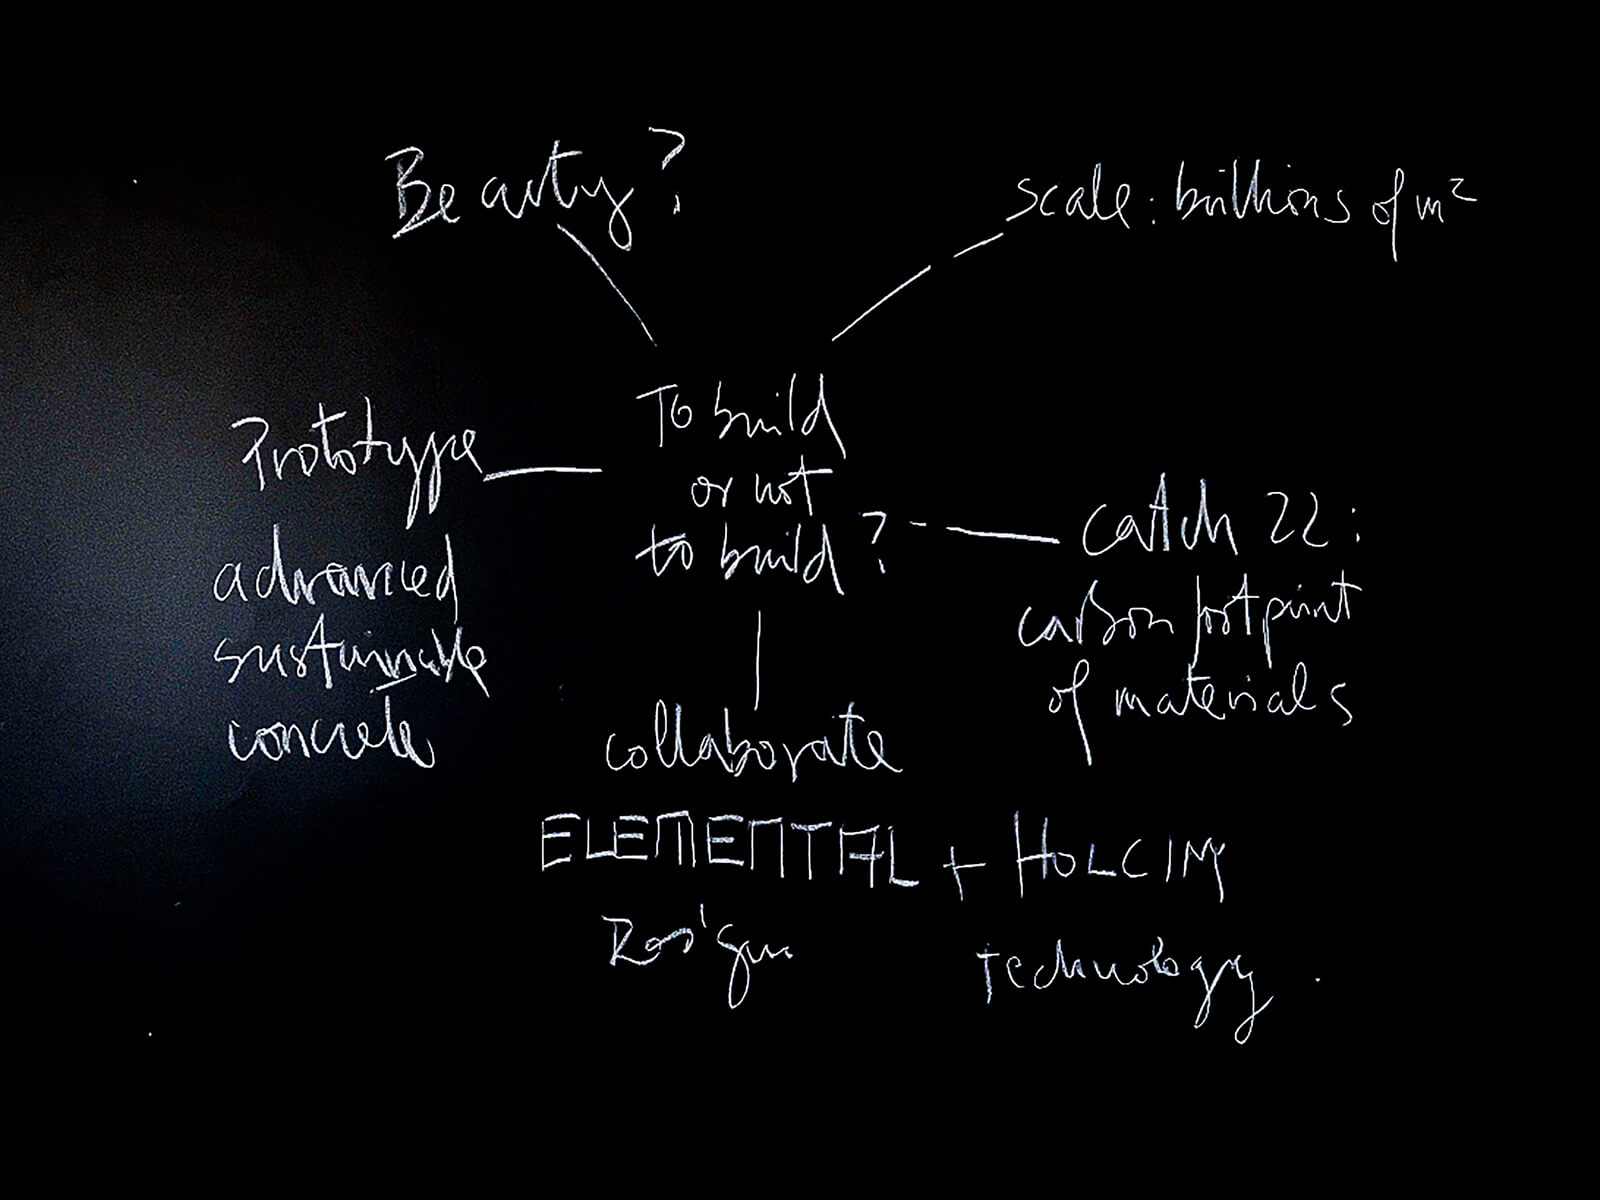 Beauty?
scale: billions of m²
To build
or not
to build?
Prototype
advanced
sustainable
concrete
catch 22:
carbon footprint
of materials
collaborate
ELEMENTAL + HOLCIM
technology